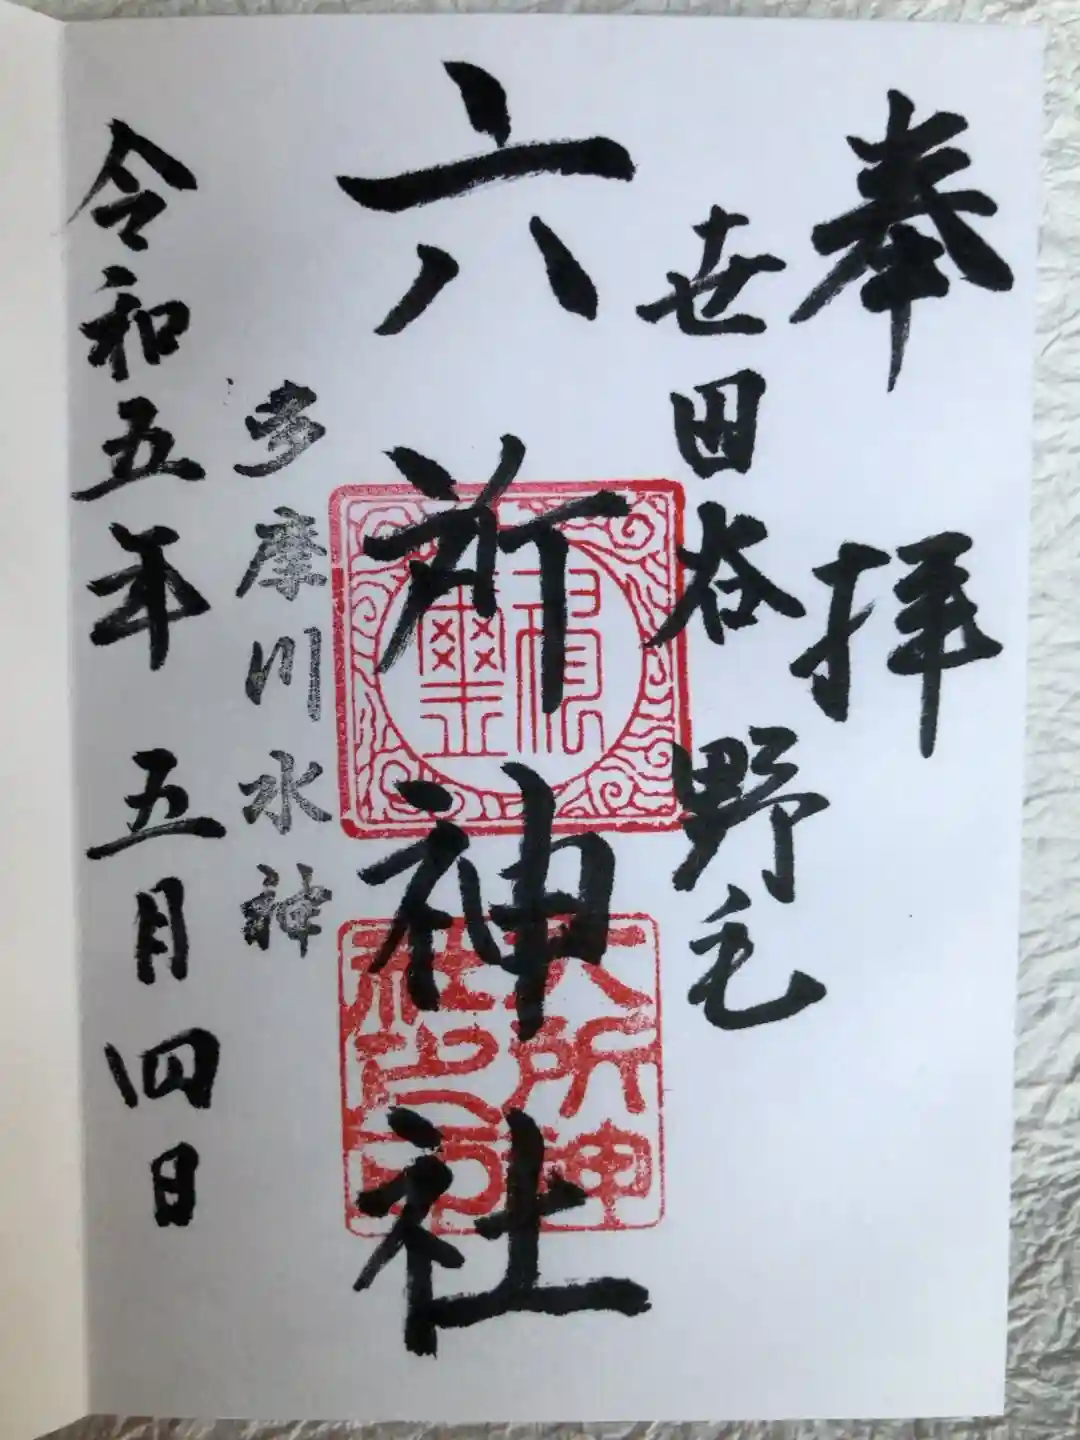 奉拝
世田谷 野毛
六所神社
多摩川水神
令和五年 五月四日
六所神
社之印